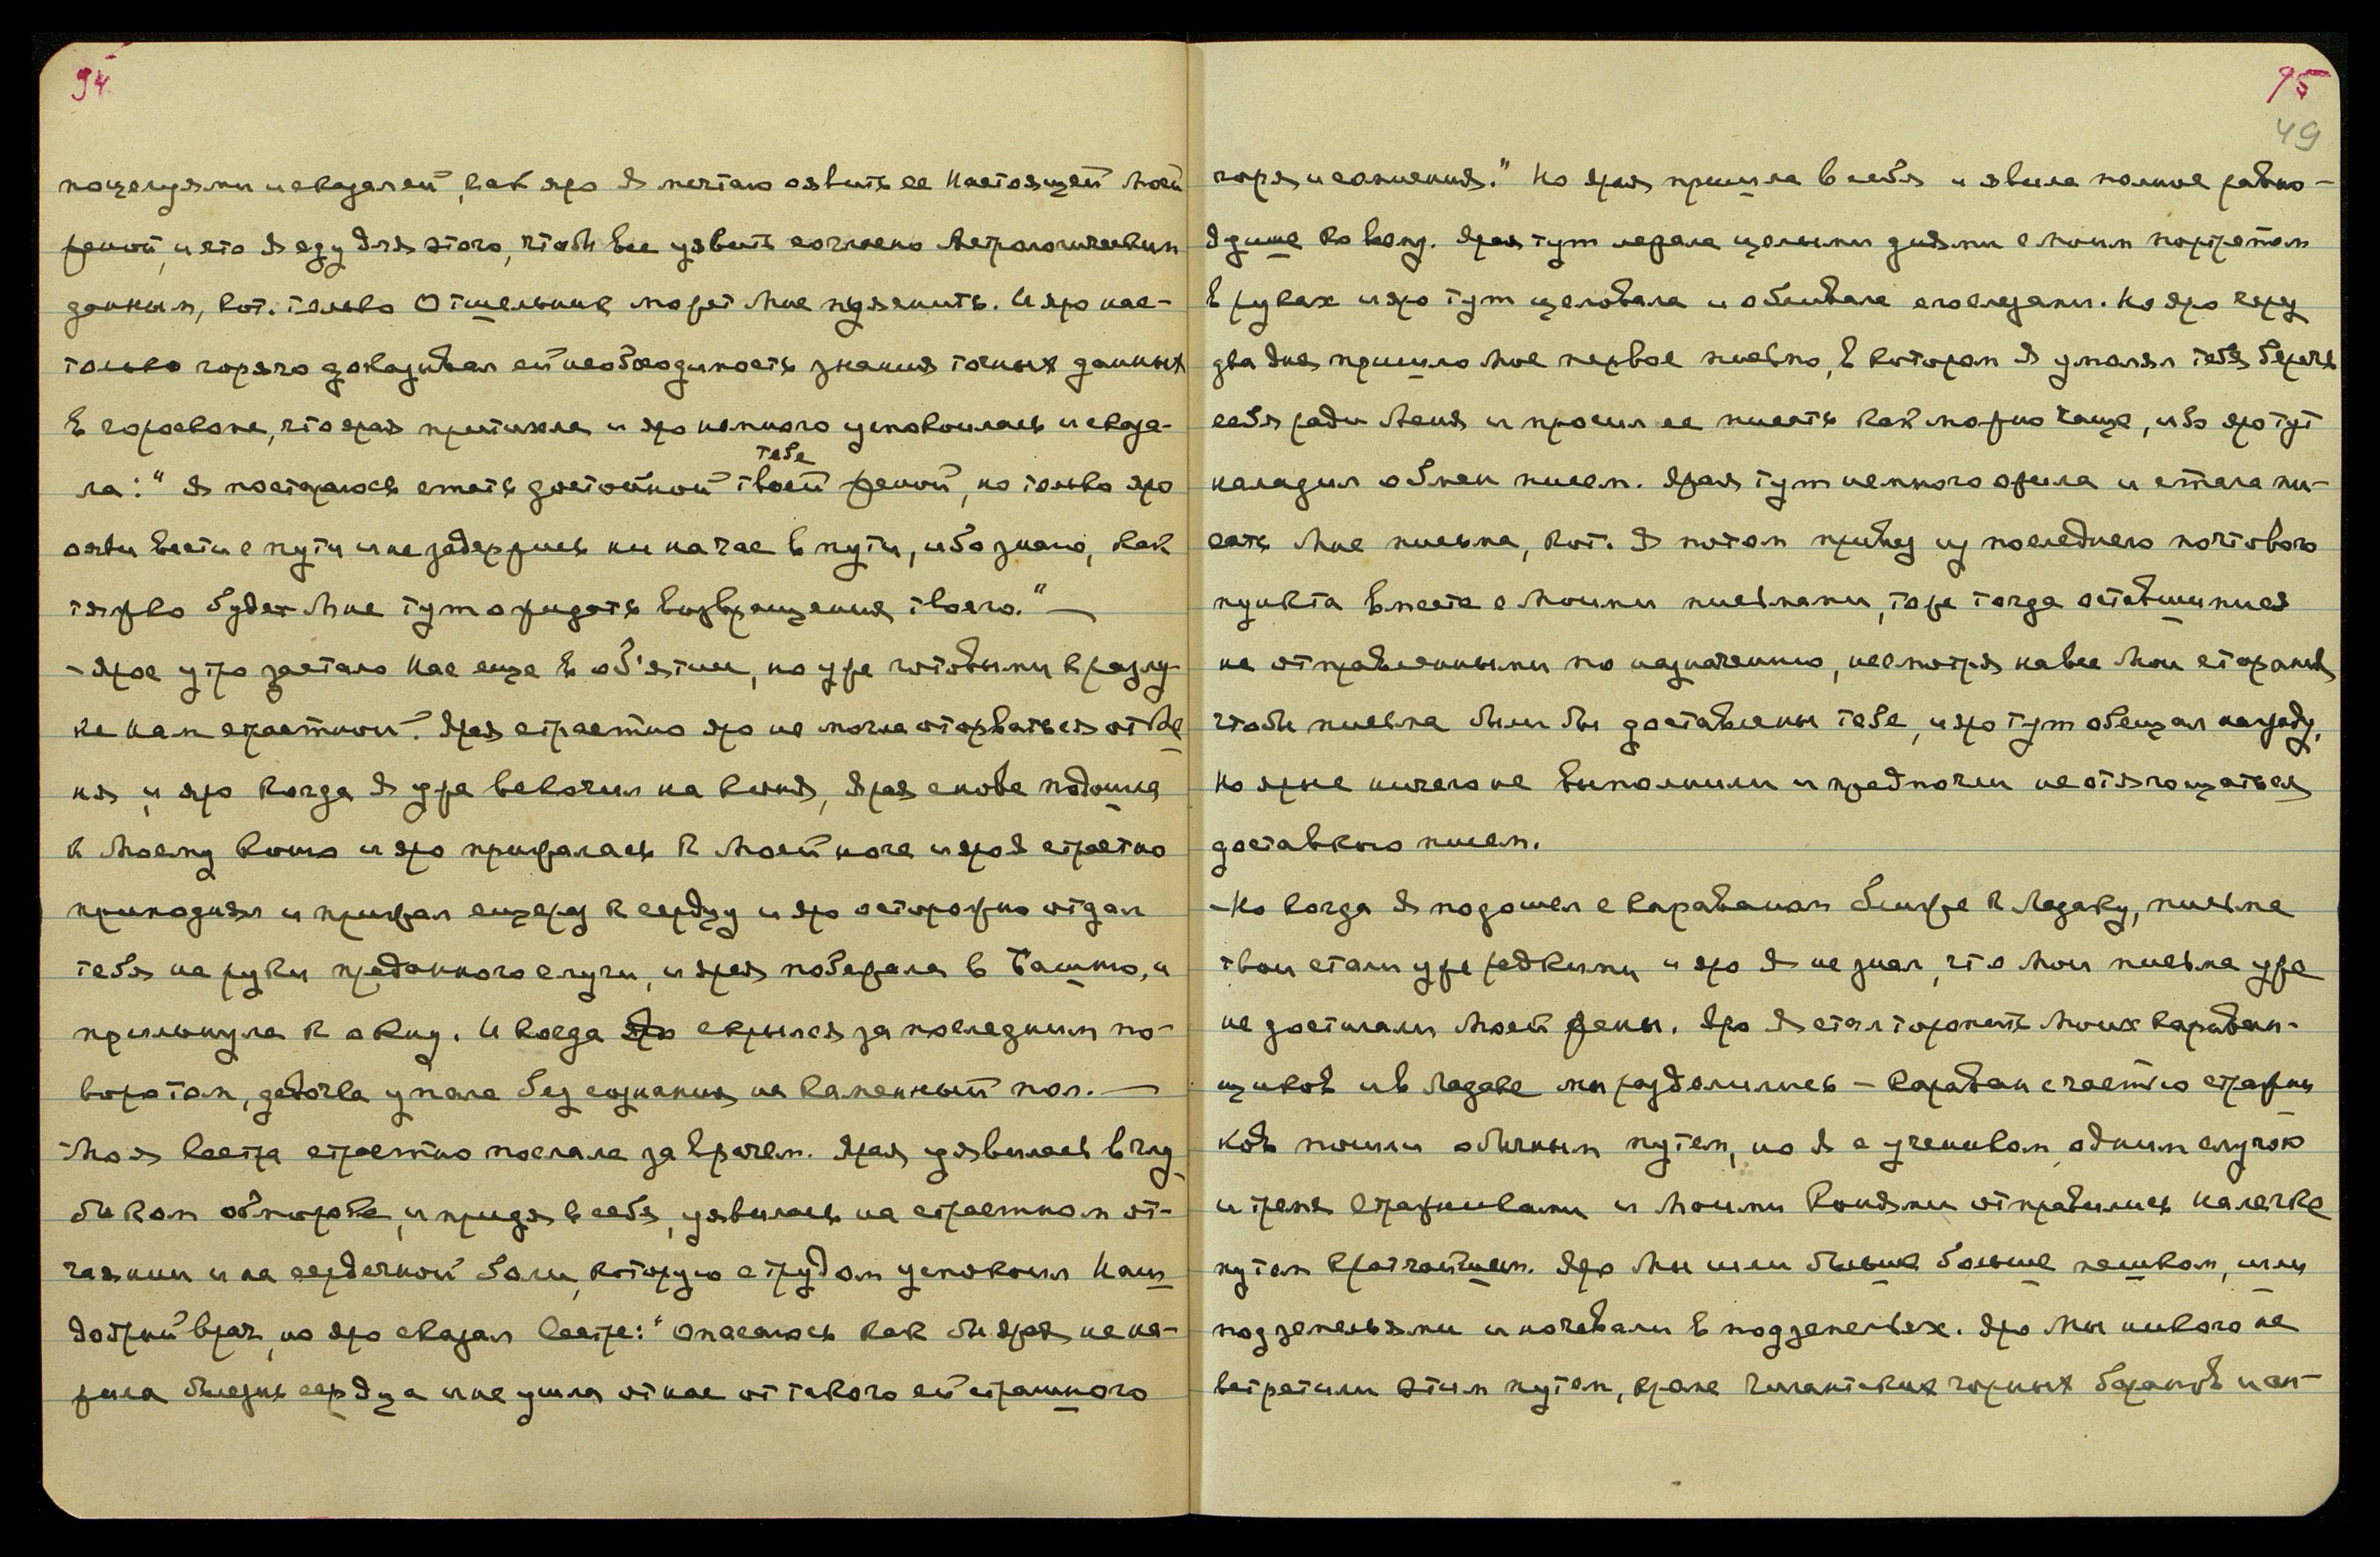 94
поцелуями и сказал ей, как яро Я мечтаю оявить ее Настоящей Моей
женой, и что Я еду для этого, чтобы все уявить согласно Астрологическим
данным, кот. только Отшельник может Мне пояснить. И яро нас-
только горячо доказывал ей необходимость знания точных данных
в гороскопе, что ярая притихла и яро немного успокоилась и сказа-
ла: "Я постараюсь стать достойной тебе твоей женой, но только яро
ояви вести с пути и не задержись ни на час в пути, ибо знаю, как
тяжко будет Мне тут ожидать возвращения твоего." —
- Ярое утро застало Нас еще в об'ятии, но уже готовыми к разлу-
ке Нам страстной. Ярая страстно яро не могла оторваться от Ме
ня, и яро когда Я уже вскочил на коня, ярая снова подошла
к Моему коню и яро прижалась к Моей ноге и яро Я страстно
приподнял и прижал еще раз к сердцу и яро осторожно отдал
тебя на руки преданного слуги, и ярая побежала в Башню, и
прильнула к окну. И когда Яро скрылся за последним по-
воротом, девочка упала без сознания на каменный пол. —
- Моя Сестра страстно послала за врачем. Ярая уявилась в глу
боком обмороке, и придя в себя, уявилась на страстном от-
чаянии и на сердечной боли, которую с трудом успокоил Наш
добрый врач, но яро сказал Сестре: "Опасаюсь как бы ярая не на-
жила болезнь сердца и не ушла от нас от такого ей страшного
95
49
горя и сомнения." Но ярая пришла в себя и явила полное равно-
душие ко всему. Ярая тут лежала целыми днями с моим портретом
в руках и яро тут целовала и обливала его слезами. Но яро через
два дня пришло Мое первое письмо, в котором Я умолял тебя беречь
себя ради Меня и просил ее писать как можно чаще, ибо яро тут
наладил обмен писем. Ярая тут немного ожила и стала пи-
сать Мне письма, кот. Я потом привез из последнего почтового
пункта вместе с Моими письмами, тоже тогда оставшимися
не отправленными по назначению, несмотря на все Мои старания,
чтобы письма были бы доставлены тебе, и яро тут обещал награду,
но ярые ничего не выполнили и предпочли не отягощаться
доставкою писем.
- Но когда Я подошел с караваном ближе к Ладаку, письма
твои стали уже редкими и яро Я не знал, что Мои письма уже
не достигали Моей жены. Яро Я стал торопить Моих караван-
щиков и в Ладаке мы разделились — караван с частью стражни
ков пошли обычным путем, но Я с учеником, одним слугою
и тремя стражниками и Моими конями отправились налегке
путем кратчайшим. Яро Мы шли больше пешком, или
подземельями и ночевали в подземельях. Яро Мы никого не
встретили этим путем, кроме гигантских горных баранов и ан-